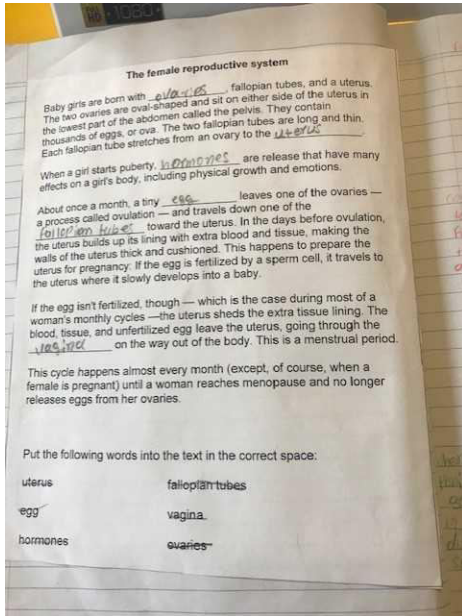 HD 1080
The female reproductive system
Baby girls are born with ovaries, fallopian tubes, and a uterus.
The two ovaries are oval-shaped and sit on either side of the uterus in
the lowest part of the abdomen called the pelvis. They contain
thousands of eggs, or ova. The two fallopian tubes are long and thin.
Each fallopian tube stretches from an ovary to the uterus.
When a girl starts puberty, hormones are release that have many
effects on a girl's body, including physical growth and emotions.
About once a month, a tiny egg leaves one of the ovaries —
a process called ovulation — and travels down one of the
fallopian tubes toward the uterus. In the days before ovulation,
the uterus builds up its lining with extra blood and tissue, making the
walls of the uterus thick and cushioned. This happens to prepare the
uterus for pregnancy: If the egg is fertilized by a sperm cell, it travels to
the uterus where it slowly develops into a baby.
If the egg isn't fertilized, though — which is the case during most of a
woman's monthly cycles —the uterus sheds the extra tissue lining. The
blood, tissue, and unfertilized egg leave the uterus, going through the
vagina on the way out of the body. This is a menstrual period.
This cycle happens almost every month (except, of course, when a
female is pregnant) until a woman reaches menopause and no longer
releases eggs from her ovaries.
Put the following words into the text in the correct space:
uterus fallopian tubes
egg vagina
hormones ovaries